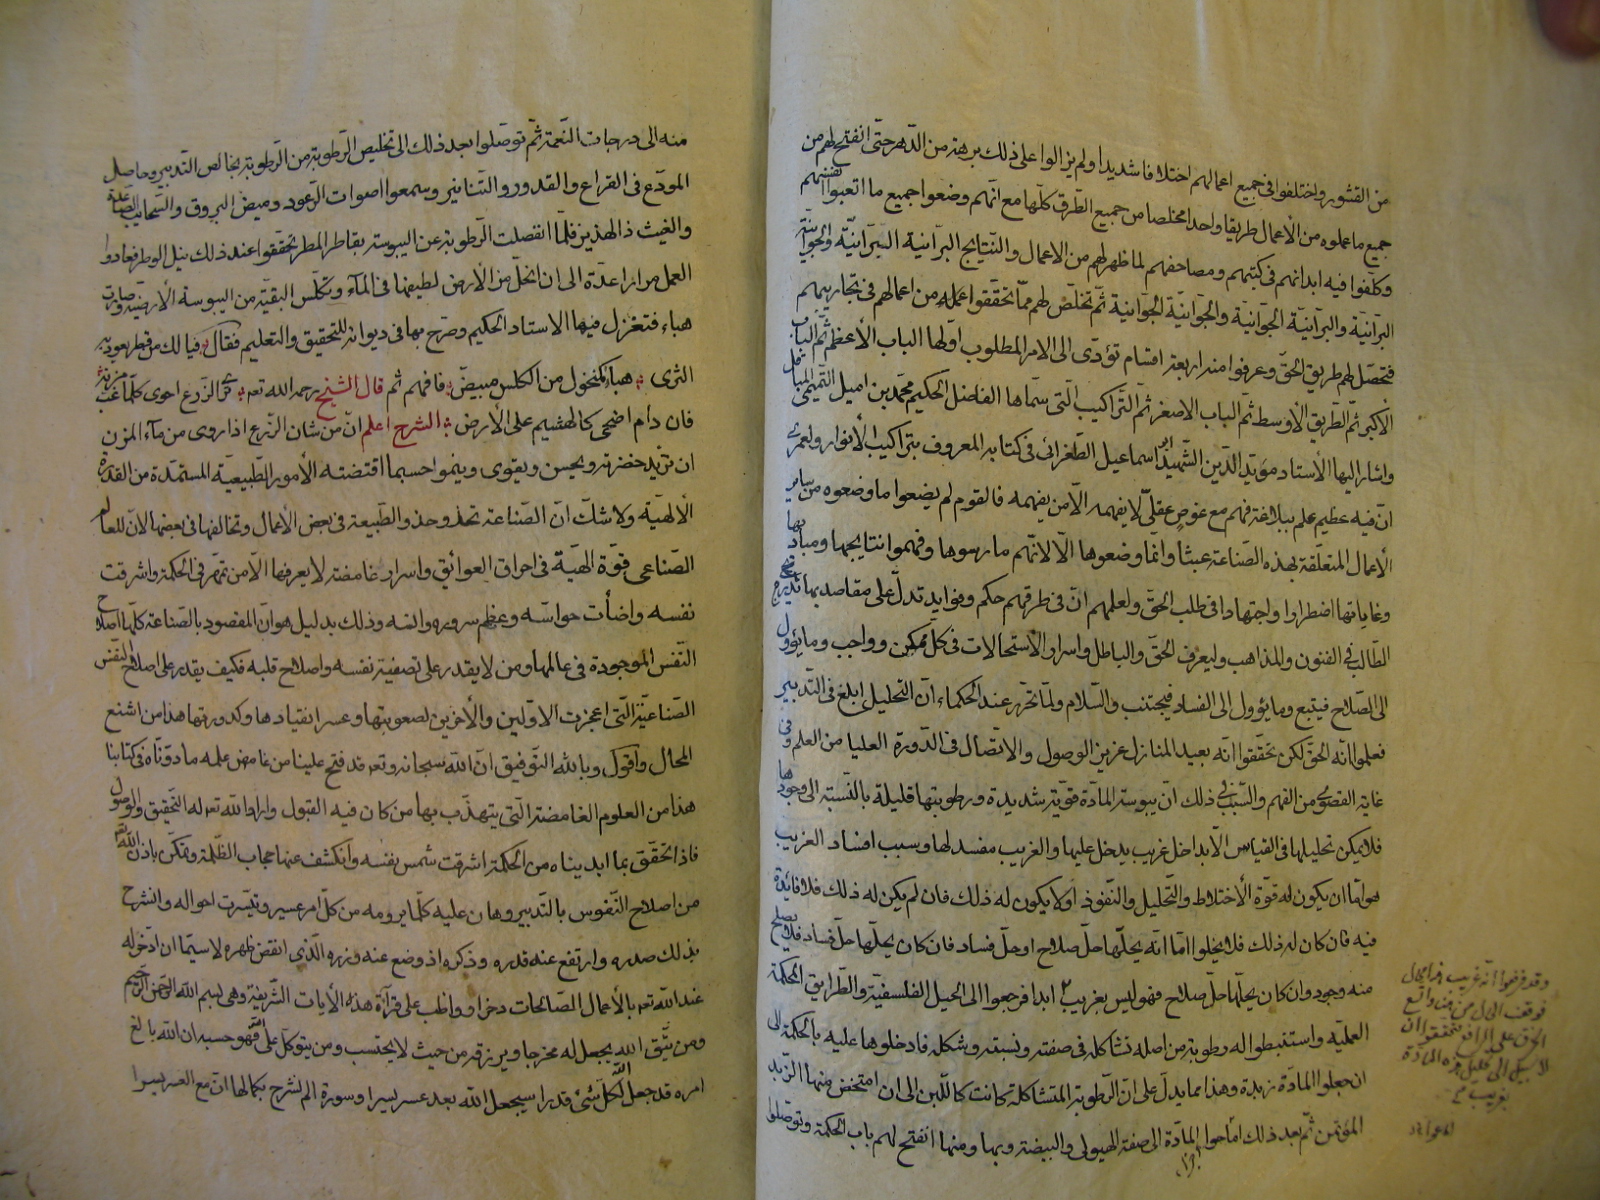 من القشور واختلفوا فى جميع اعمالهم اختلافا شديدا ولم يزالوا على ذلك برهة من الدّهر حتّى انفتح لهم من
جميع ما عملوه من الأعمال طريقا واحدا مخلصا من جميع الطّرق كلّها مع انّهم وضعوا جميع ما اتعبوا انفسهم
وكلّفوا فيه ابدانهم فى كتبهم ومصاحفهم لما ظهر لهم من الاعمال والنّتايج البرّانية البرّانيّة والجوّانيّة
البرّانيّة والبرّانيّة الجوّانيّة والجوّانيّة الجوّانية ثمّ تخلّص لهم ممّا تحقّقوا عمله من اعمالهم فى تجاربهم
فتحصّل لهم طريق الحقّ وعرفوا منه اربعة اقسام تؤدّى الى الامر المطلوب اوّلها الباب الأعظم ثمّ الباب
الأكبر ثمّ الطّريق الأوسط ثمّ الباب الاصغر ثمّ التّراكيب الّتى سمّاها الفاضل الحكيم محمّد بن اميل التّميمى
واشار اليها الأستاد مؤيّد الدّين الشّهيد ابو اسماعيل الطّغرائى فى كتابه المعروف بتراكيب الأنوار ولعمرى
انّ فيه عظيم علم ببلاغة فهم مع غوص عقلىّ لا يفهمه الّا من يفهمه فالقوم لم يضعوا ما وضعوه من ساير
الأعمال المتعلّقة بهذه الصّناعة عبثا وانّما وضعوها الّا لانّهم مارسوها وفهموا نتايجها ومباديها
وغاياتها اضطرارا واجتهادا فى طلب الحقّ ولعلمهم انّ فى طرقهم حكم وفوايد تدلّ على مقاصد بها تخرج
الطّالب فى الفنون والمذاهب وليعرف الحقّ والباطل واسرار الأستحالات فى كلّ ممكن وواجب وما يؤول
الى الصّلاح فيتبع وما يؤول الى الفساد فيجتنب والسّلام ولمّا تحرّر عند الحكماء انّ التحليل ابلغ فى التّدبير
فعلموا انّه الحقّ لكن تحقّقوا انّه بعيد المنازل عزيز الوصول والاتّصال فى الدّورة العليا من العلم وفى
غاية القصوى من الفهم والسّبب فى ذلك انّ يبوسة المادّة قويّة شديدة ورطوبتها قليلة بالنّسبة الى وجودها
فلا يمكن تحليلها فى القياس الّا بداخل غريب يدخل عليها والغريب مفسد لها وسبب افساد الغريب
هو امّا ان يكون له قوّة الأختلاط والتّحليل والنّفوذ او لا يكون له ذلك فان لم يكن له ذلك فلا فائدة
فيه فان كان له ذلك فلا يخلوا امّا انّه يحلّها حلّ صلاح او حلّ فساد فان كان يحلّها حلّ فساد فلا يصلح
منه وجود وان كان يحلّها حلّ صلاح فهو ليس بغريب ابدا فرجعوا الى الحيل الفلسفيّة والطّرايق الحكمة
العمليّة واستنبطوا له رطوبة من اصله تشاكله فى صفته ونسبته وشكله فادخلوها عليه بالحكمة الى
ان جعلوا المادّة زبدة وهذا مما يدلّ على انّ الرّطوبة المتشاكلة كانت كاللّبن الى ان امتخض منها الزّبد
المؤتمن ثمّ بعد ذلك اماحوا المادّة الى صفة الهيولى والبيضة وبها ومنها انفتح لهم باب الحكمة وتوصّلوا
منه الى درجات النّعمة ثمّ توصّلوا بعد ذلك الى تخليص الرّطوبة من الرّطوبة بخالص التّدبير وحاصل
المودّع فى القراع والقدور والتّنانير وسمعوا اصوات الرّعود وميض البروق والسّحايب الصّاعدة
والغيث ذا الهذيز فلمّا انفصلت الرّطوبة عن اليبوسة بقاطر المطر تحقّقوا عند ذلك بنيل الوطر فعادوا
العمل مرارا عدّة الى ان انحلّ من الأرض لطيفها فى المآء وتكلّس البقيّة من اليبوسة الأرضيّة وصارت
هباء فتغزل فيها الاستاد الحكيم وصرّح بها فى ديوانه للتحقيق والتعليم فقال فيا لك من قطر يعود به
الثرى هباء كمنخول من الكلس مبيضّ فافهم ثم قال الشّيخ رحمه الله تعم كمّ الزّرع احوى كلّما غبّ مزنه
فان دام اضحى كالهشيم على الأرض الشّرح اعلم انّ من شان الزّرع اذا روى من مآء المزن
ان تزيد خضرته ويحسن ويقوى وينموا حسبما اقتضته الأمور الطّبيعيّة المستمدّة من القدرة
الألهيّة ولا شكّ انّ الصّناعة تحذو حذو الطّبيعة فى بعض الأعمال وتخالفها فى بعضها لأنّ للعالم
الصّناعى قوّة الهيّة فى احراق العوائق واسرار غامضة لا يعرفها الّا من تمهّر فى الحكمة واشرقت
نفسه واضأت حواسّه وعظم سروره وانسه وذلك بدليل هو انّ المقصود بالصّناعة كلّها اصلاح
النّفس الموجودة فى عالمها ومن لا يقدر على تصفية نفسه واصلاح قلبه فكيف يقدر على اصلاح النّفس
الصّناعيّة الّتى اعجزت الاوّلين والأخرين لصعوبتها وعسر انقيادها وكدورتها هذا من اشنع
المحال واقول وبالله التّوفيق انّ الله سبحانه وتعم قد فتح علينا من غامض علمه ما دوّنّاه فى كتابنا
هذا من العلوم الغامضة الّتى يتهذّب بها من كان فيه القبول واراد الله تعم له التّحقيق والوصول
فاذا تحقّق بما ابديناه من الحكمة اشرقت شمس نفسه وانكشف عنها حجاب الظّلمة وتمكّن باذن الله تعم
من اصلاح النّفوس بالتّدبير وهان عليه كلّما يرومه من كلّ امر عسير وتيسّرت احواله وانشرح
بذلك صدره وارتفع عنه قدره وذكره اذ وضع عنه وزره الّذى انقض ظهره لا سيّما ان ادّخر له
عند الله تعم بالأعمال الصّالحات دخرا وواظب على قرآءة هذه الأيات الشّريفة وهى بسم الله الرّحمن الرّحيم
ومن يتّق الله يجعل له مخرجا ويرزقه من حيث لا يحتسب ومن يتوكّل على الله فهو حسبه ان الله بالغ
امره قد جعل الله لكلّ شئ قدرا سيجعل الله بعد عسر يسرا وسورة الم نشرح بكمالها انّ مع العسر يسرا